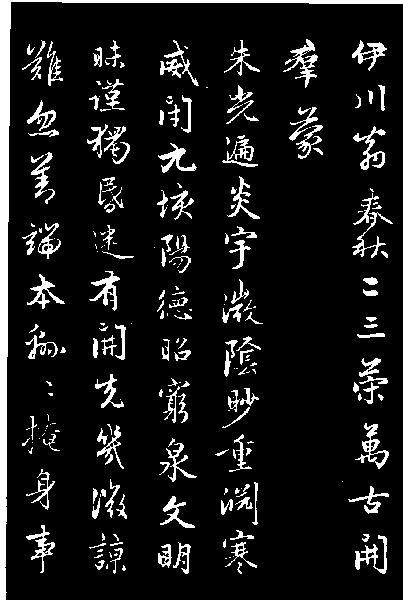 伊川翁春秋二三策萬古開
羣蒙
朱光遍炎宇微陰眇重淵寒
威閉九垓陽德昭窮泉文明
昧謹獨昏迷有開先幾微諒
難忽善端本綿〻掩身事